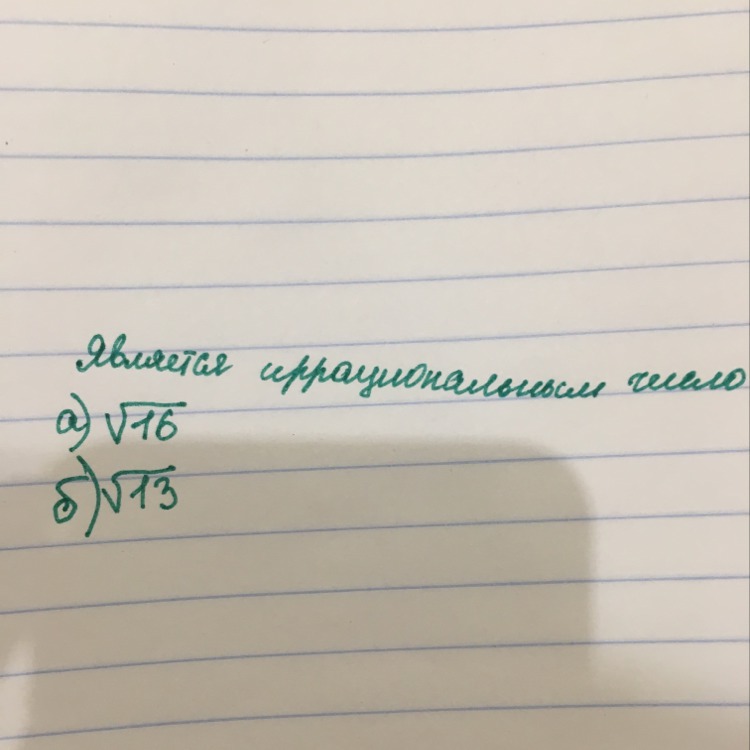 Является иррациональным число
а) √16
б) √13